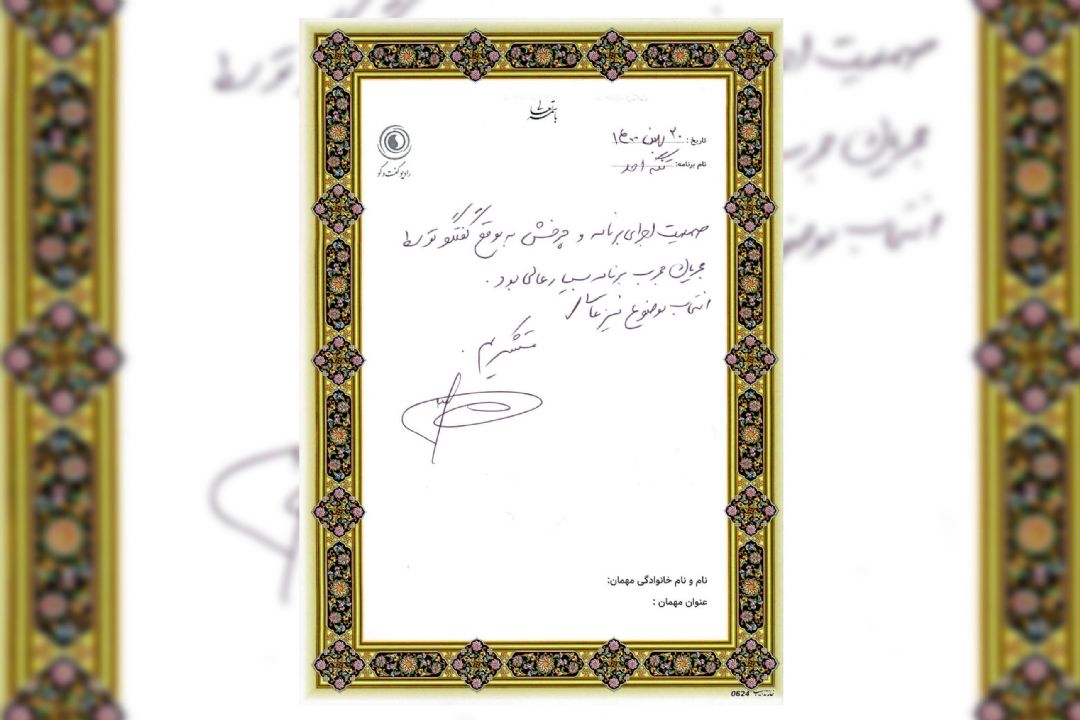 باسمه تعالی
تاریخ: ۳۰ بهمن ۱۴۰۰
رادیو گفت و گو
نام برنامه: تنگه احد
صمیمیت اجرای برنامه و چرخش به موقع گفتگو توسط
مجریان مجرب برنامه بسیار عالی بود.
انتخاب موضوع نیز عالی
متشکریم.
نام و نام خانوادگی مهمان:
عنوان مهمان :
0624